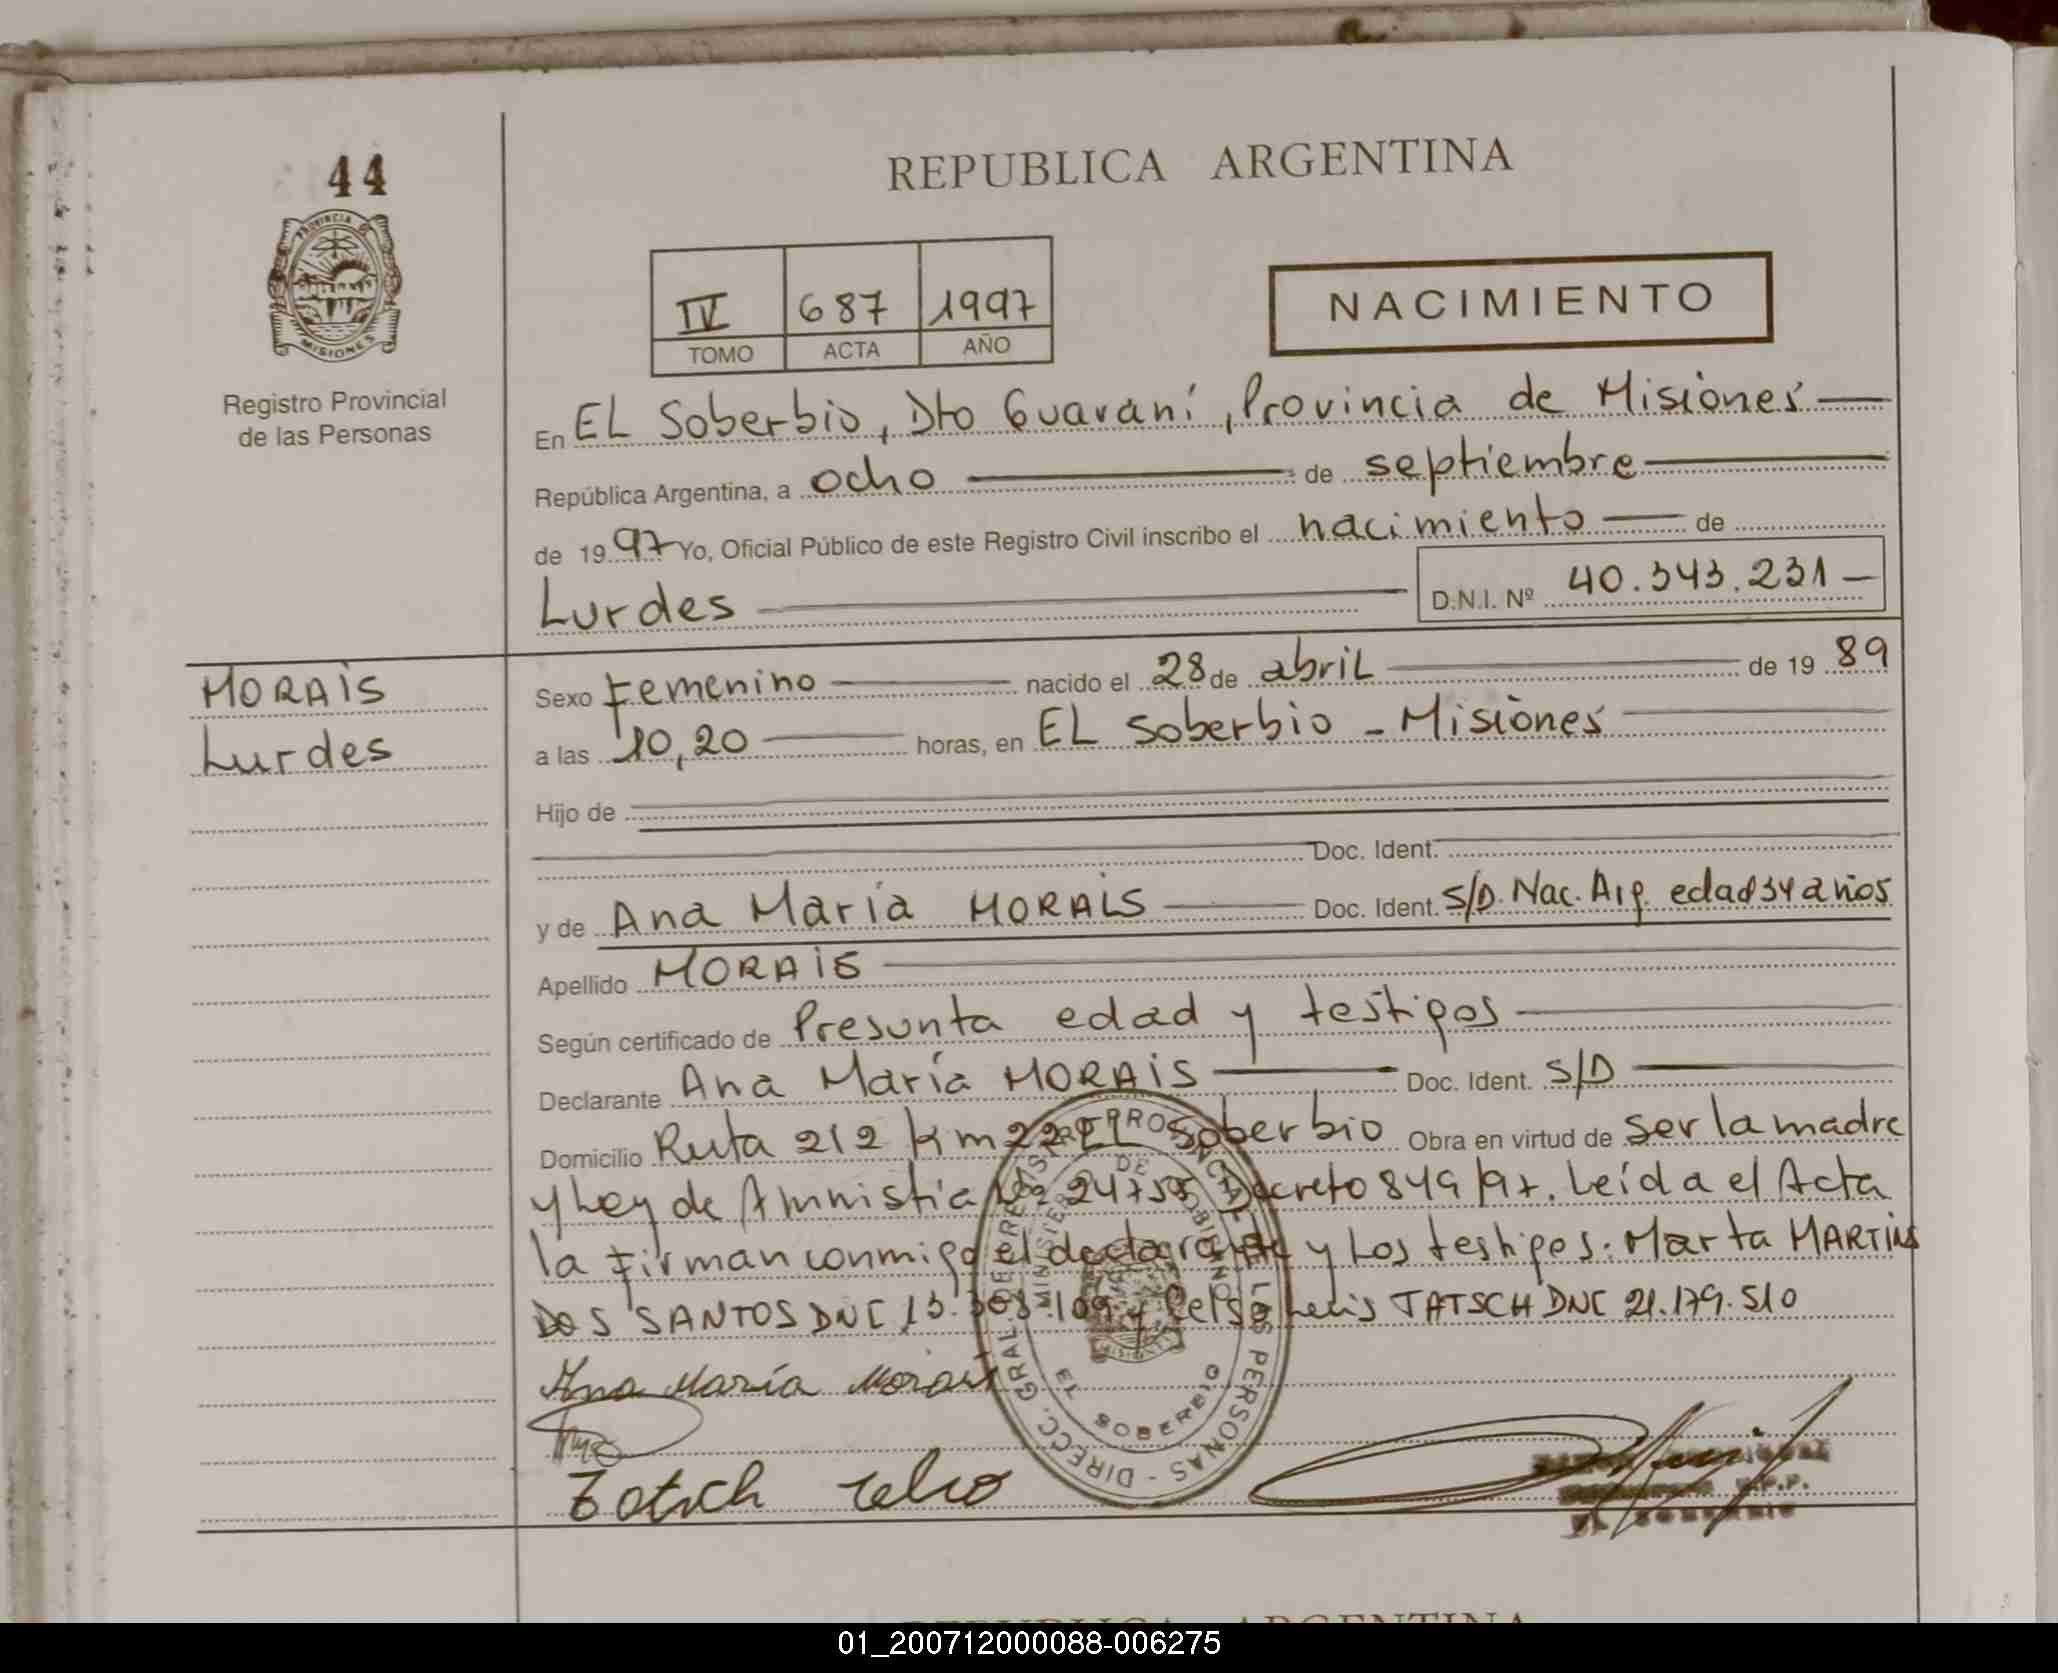 44
REPUBLICA ARGENTINA
PROVINCIA DE
MISIONES
Registro Provincial
de las Personas
IV 687 1997
TOMO ACTA AÑO
NACIMIENTO
En EL Soberbio, Dto Guaraní, Provincia de Misiones
República Argentina, a ocho de septiembre
de 1997 Yo, Oficial Público de este Registro Civil inscribo el nacimiento de
Lurdes D.N.I. Nº 40.343.231
MORAIS
Lurdes
Sexo Femenino nacido el 28 de abril de 1989
a las 10,20 horas, en EL Soberbio - Misiones
Hijo de
Doc. Ident.
y de Ana María MORAIS Doc. Ident. S/D. Nac. Arg. edad 34 años
Apellido MORAIS
Según certificado de Presunta edad y testigos
Declarante Ana María MORAIS Doc. Ident. S/D
Domicilio Ruta 212 Km 22 EL Soberbio Obra en virtud de ser la madre
y Ley de Amnistia 24755 Decreto 849/97. Leída el Acta
la firman conmigo el declarante y Los testigos: Marta MARTINS
DOS SANTOS DNI y Celso Luis TATSCH DNI 21.179.510
Ana María Morais
Tatsch Celso
DIRECC. GRAL. DE REGISTRO PROVINCIAL DE LAS PERSONAS
MINISTERIO DE GOBIERNO
EL SOBERBIO
MISIONES
EL SOBERBIO
REPUBLICA ARGENTINA
01_200712000088-006275